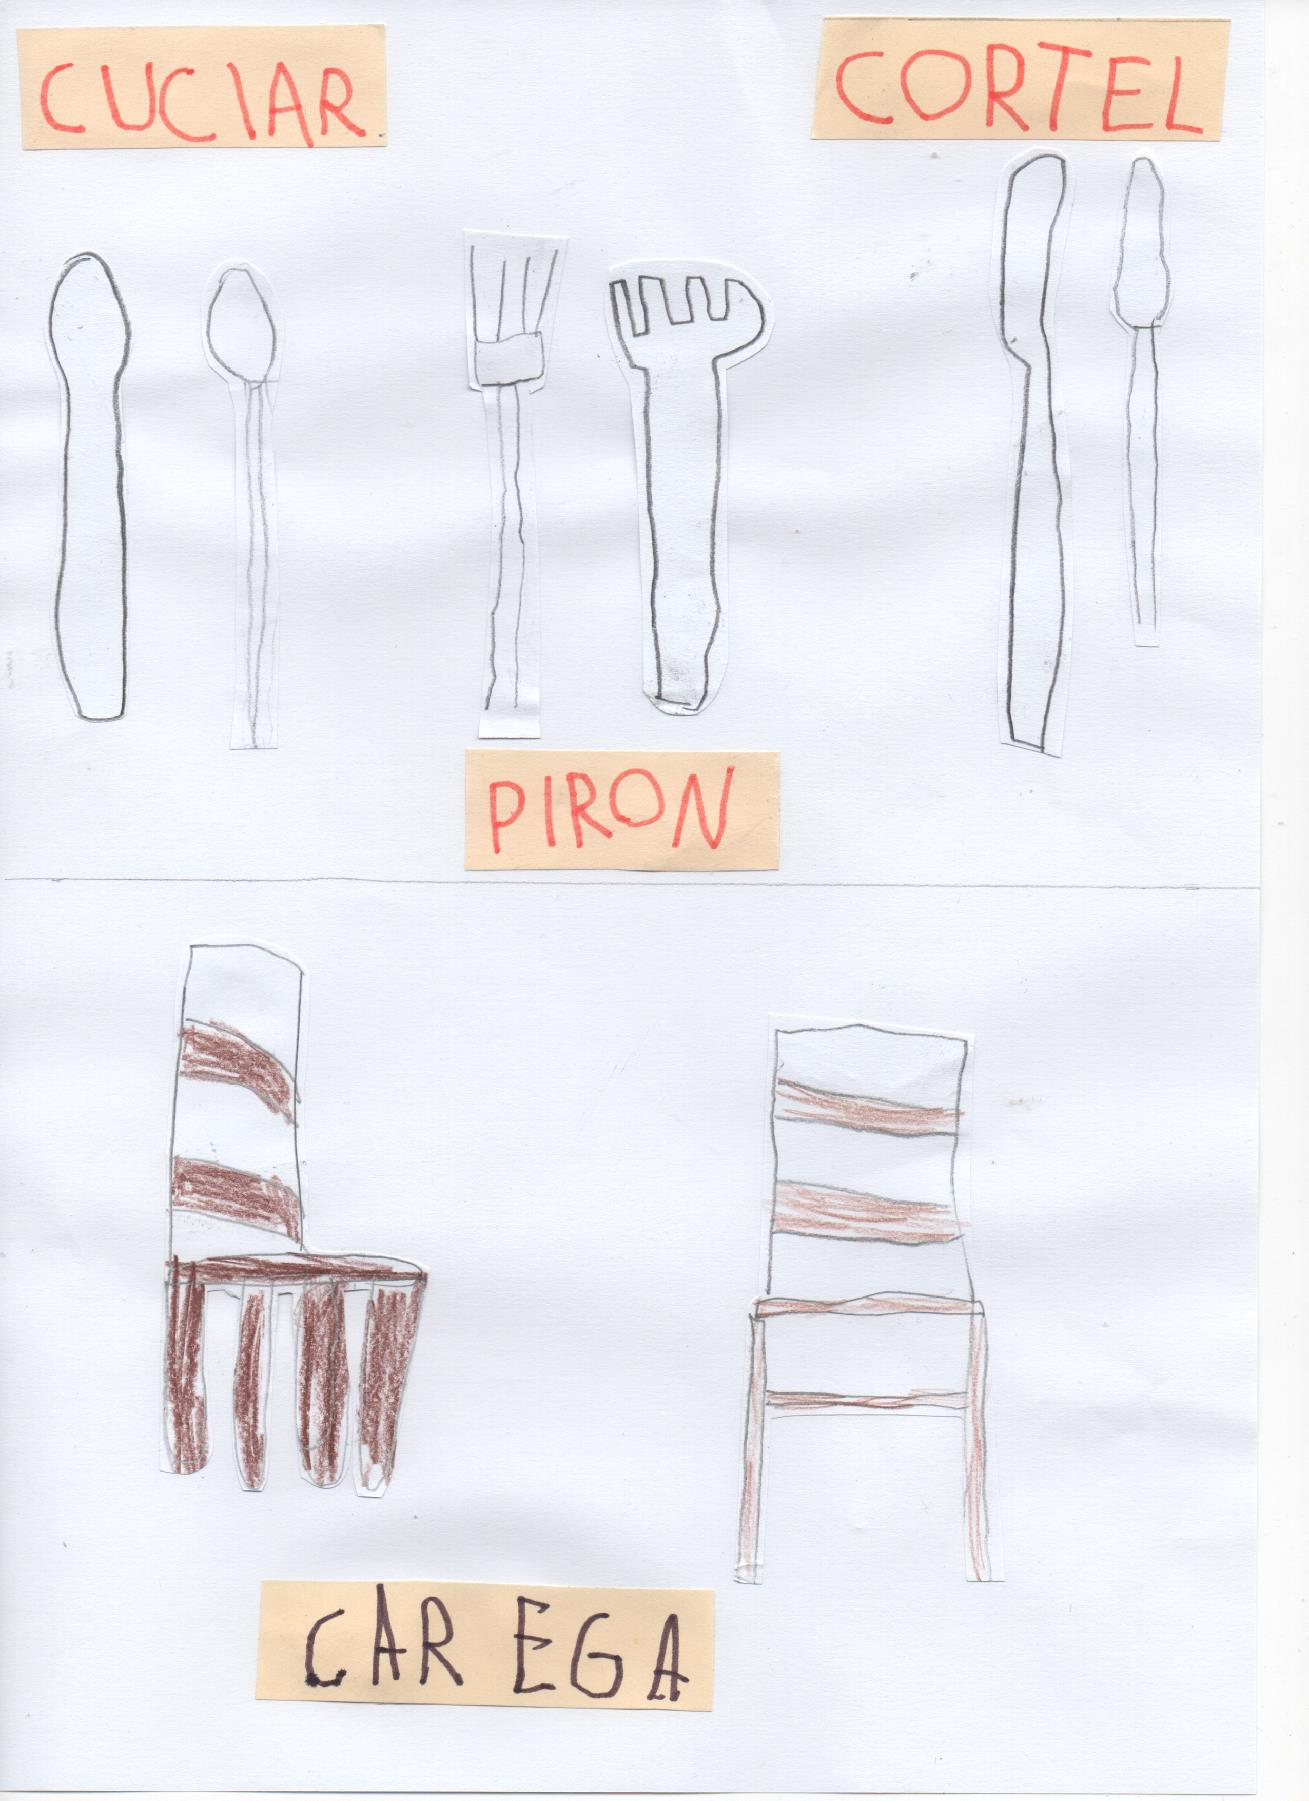 CUCIAR
CORTEL
PIRON
CAREGA